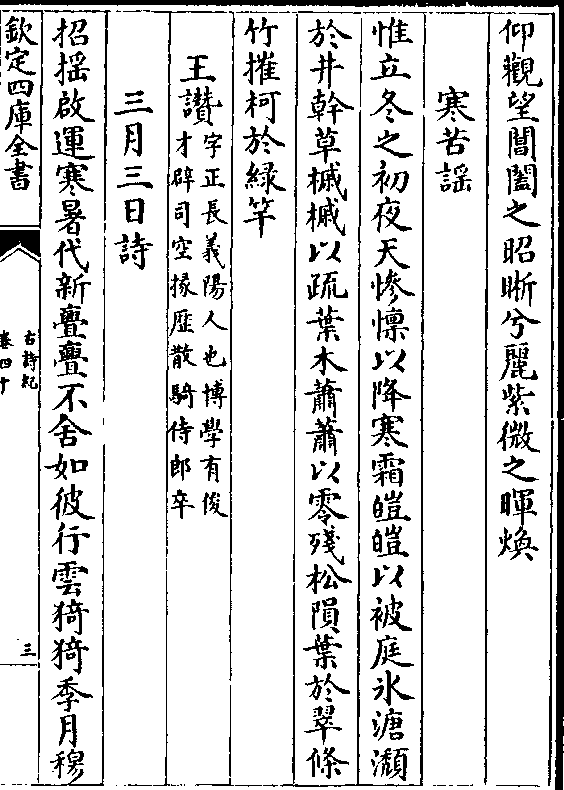 仰觀望閶闔之昭晰兮麗紫微之暉煥
寒苦謡
惟立冬之初夜天慘懍以降寒霜皚皚以被庭冰溏瀨
於井幹草槭槭以疏葉木蕭蕭以零殘松隕葉於翠條
竹摧柯於緑竿
王讚字正長義陽人也博學有俊
才辟司空掾歴散騎侍郎卒
三月三日詩
招揺啟運寒暑代新亹亹不舍如彼行雲猗猗季月穆
欽定四庫全書
古詩紀
卷四十
三